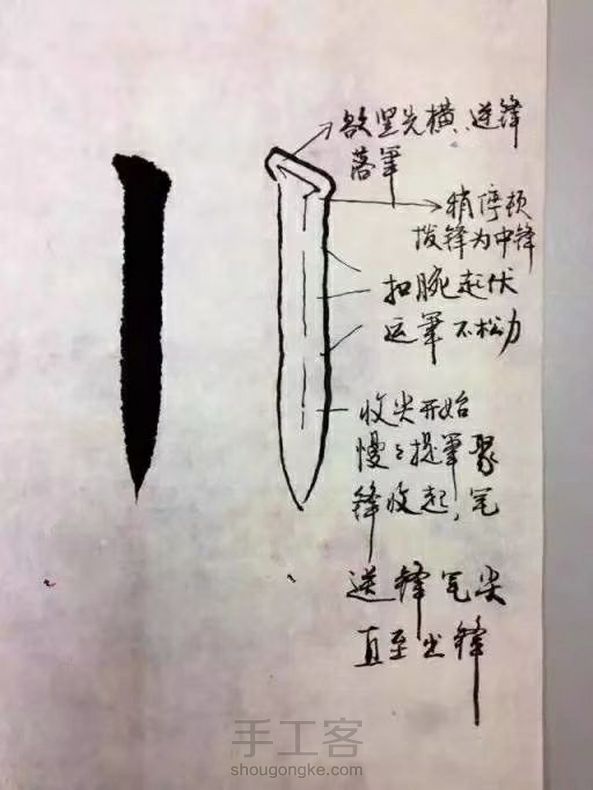 欲竖先横、逆锋
落笔
稍停顿
拨锋为中锋
扣腕起伏
运笔不松力
收尖开始
慢々提笔聚
锋收起,笔
送锋笔尖
直至出锋
手工客
shougongke.com